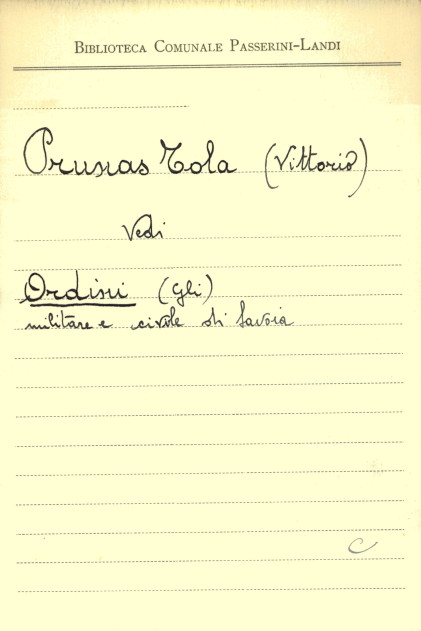 Biblioteca Comunale Passerini-Landi
Prunas Tola (Vittorio)
Vedi
Ordini (Gli)
militare e civile di Savoia
C